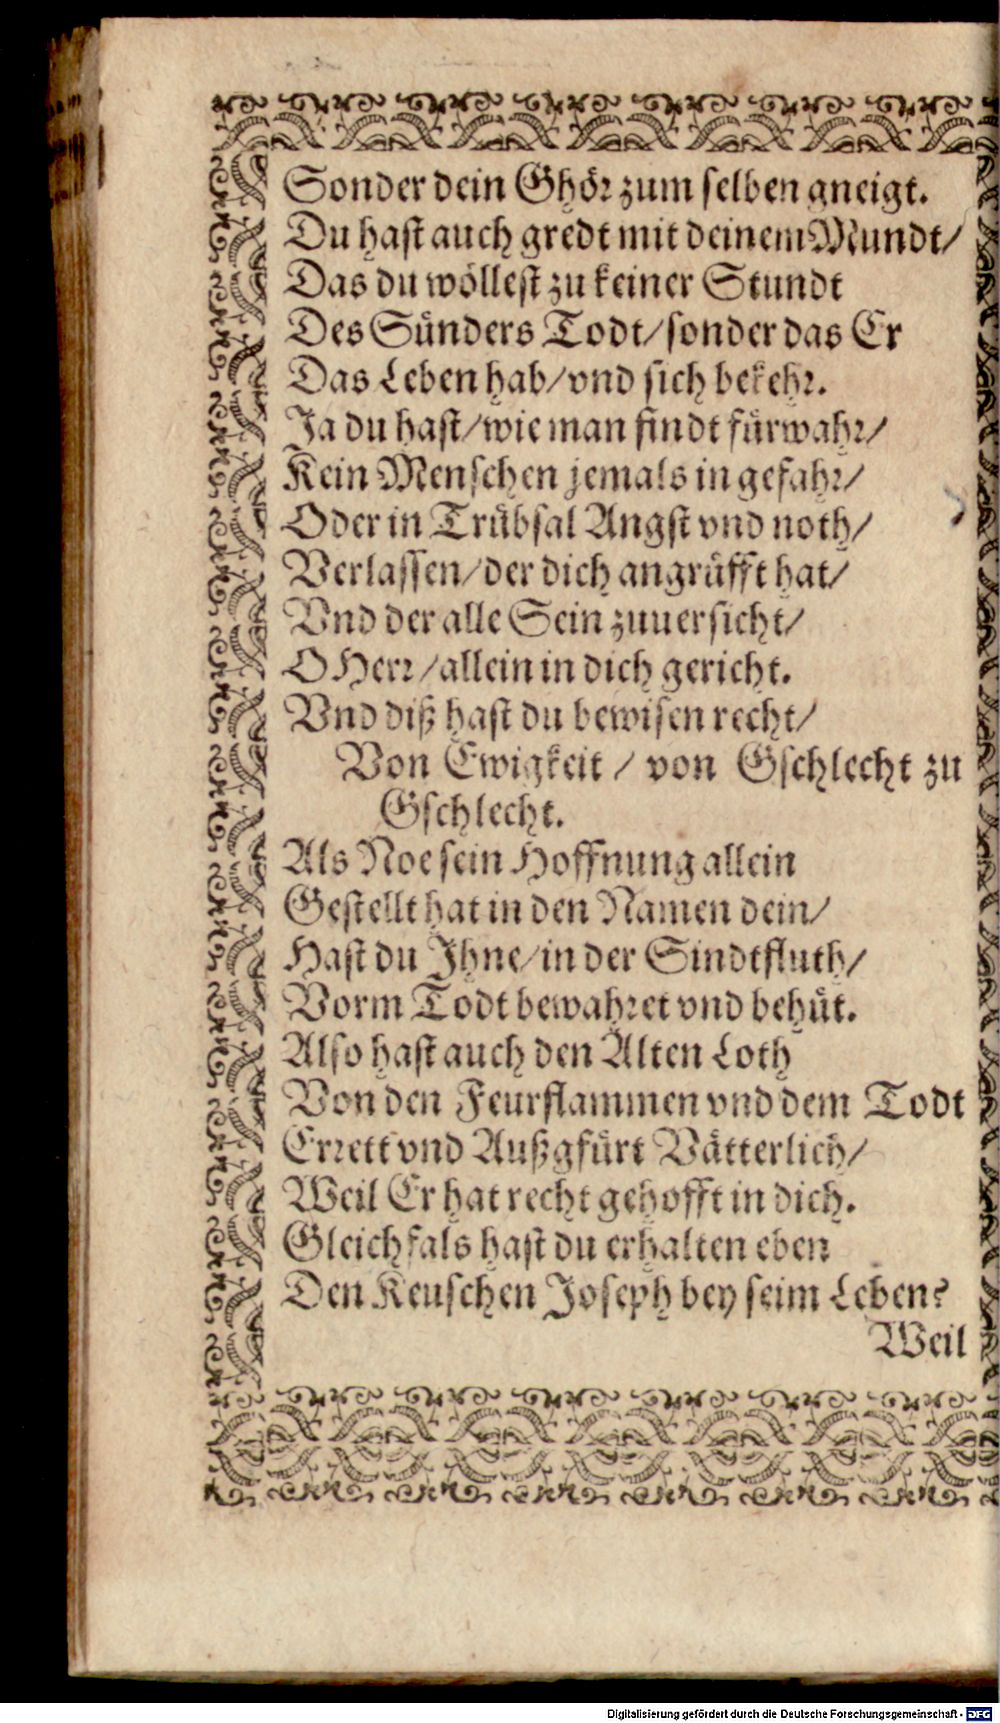 Sonder dein Ghör zum selben gneigt.
Du hast auch gredt mit deinem Mundt/
Das du wöllest zu keiner Stundt
Des Sünders Todt/sonder das Er
Das Leben hab/vnd sich bekehr.
Ja du hast/wie man findt fürwahr/
Kein Menschen jemals in gefahr/
Oder in Trübsal Angst vnd noth/
Verlassen/der dich angrüfft hat/
Vnd der alle Sein zuuersicht/
O Herr/allein in dich gericht.
Vnd diß hast du bewisen recht/
Von Ewigkeit / von Gschlecht zu
Gschlecht.
Als Noe sein Hoffnung allein
Gestellt hat in den Namen dein/
Hast du Ihne/in der Sindtfluth/
Vorm Todt bewahret vnd behüt.
Also hast auch den Alten Loth
Von den Feurflammen vnd dem Todt
Errett vnd Außgfürt Vätterlich/
Weil Er hat recht gehofft in dich.
Gleichfals hast du erhalten eben
Den Keuschen Joseph bey seim Leben?
Weil
Digitalisierung gefördert durch die Deutsche Forschungsgemeinschaft - DFG